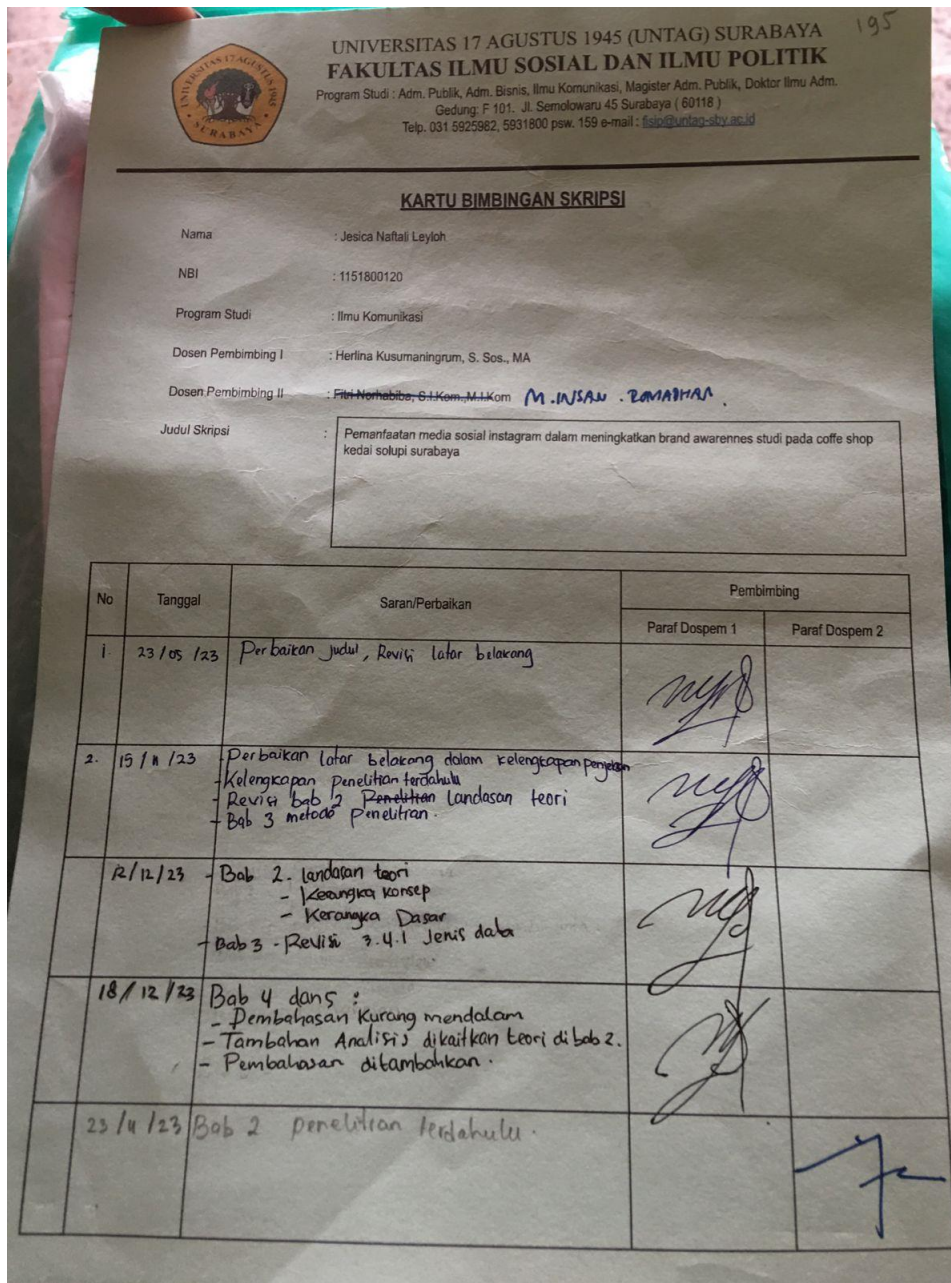 195
UNIVERSITAS 17 AGUSTUS 1945 (UNTAG) SURABAYA
FAKULTAS ILMU SOSIAL DAN ILMU POLITIK
Program Studi : Adm. Publik, Adm. Bisnis, Ilmu Komunikasi, Magister Adm. Publik, Doktor Ilmu Adm.
Gedung: F 101. Jl. Semolowaru 45 Surabaya ( 60118 )
Telp. 031 5925982, 5931800 psw. 159 e-mail : fisip@untag-sby.ac.id
UNIVERSITAS 17 AGUSTUS 1945
SURABAYA
KARTU BIMBINGAN SKRIPSI
Nama : Jesica Naftali Leyloh
NBI : 1151800120
Program Studi : Ilmu Komunikasi
Dosen Pembimbing I : Herlina Kusumaningrum, S. Sos., MA
Dosen Pembimbing II : Fitri Norhabiba, S.I.Kom.,M.I.Kom M. INSAN . ROMADHAN
Judul Skripsi : Pemanfaatan media sosial instagram dalam meningkatkan brand awarennes studi pada coffe shop
kedai solupi surabaya
No Tanggal Saran/Perbaikan Pembimbing
Paraf Dospem 1 Paraf Dospem 2
1. 23/05/23 Perbaikan judul, Revisi latar belakang
2. 15/11/23 - Perbaikan latar belakang dalam kelengkapan
- Kelengkapan Penelitian terdahulu
- Revisi bab 2 Penelitian landasan teori
- Bab 3 metode penelitian.
12/12/23 - Bab 2. landasan teori
- Kerangka konsep
- Kerangka Dasar
- Bab 3 - Revisi 3.4.1 Jenis data
18/12/23 Bab 4 dan 5 :
- Pembahasan Kurang mendalam
- Tambahan Analisis dikaitkan teori di bab 2.
- Pembahasan ditambahkan.
23/11/23 Bab 2 penelitian terdahulu.